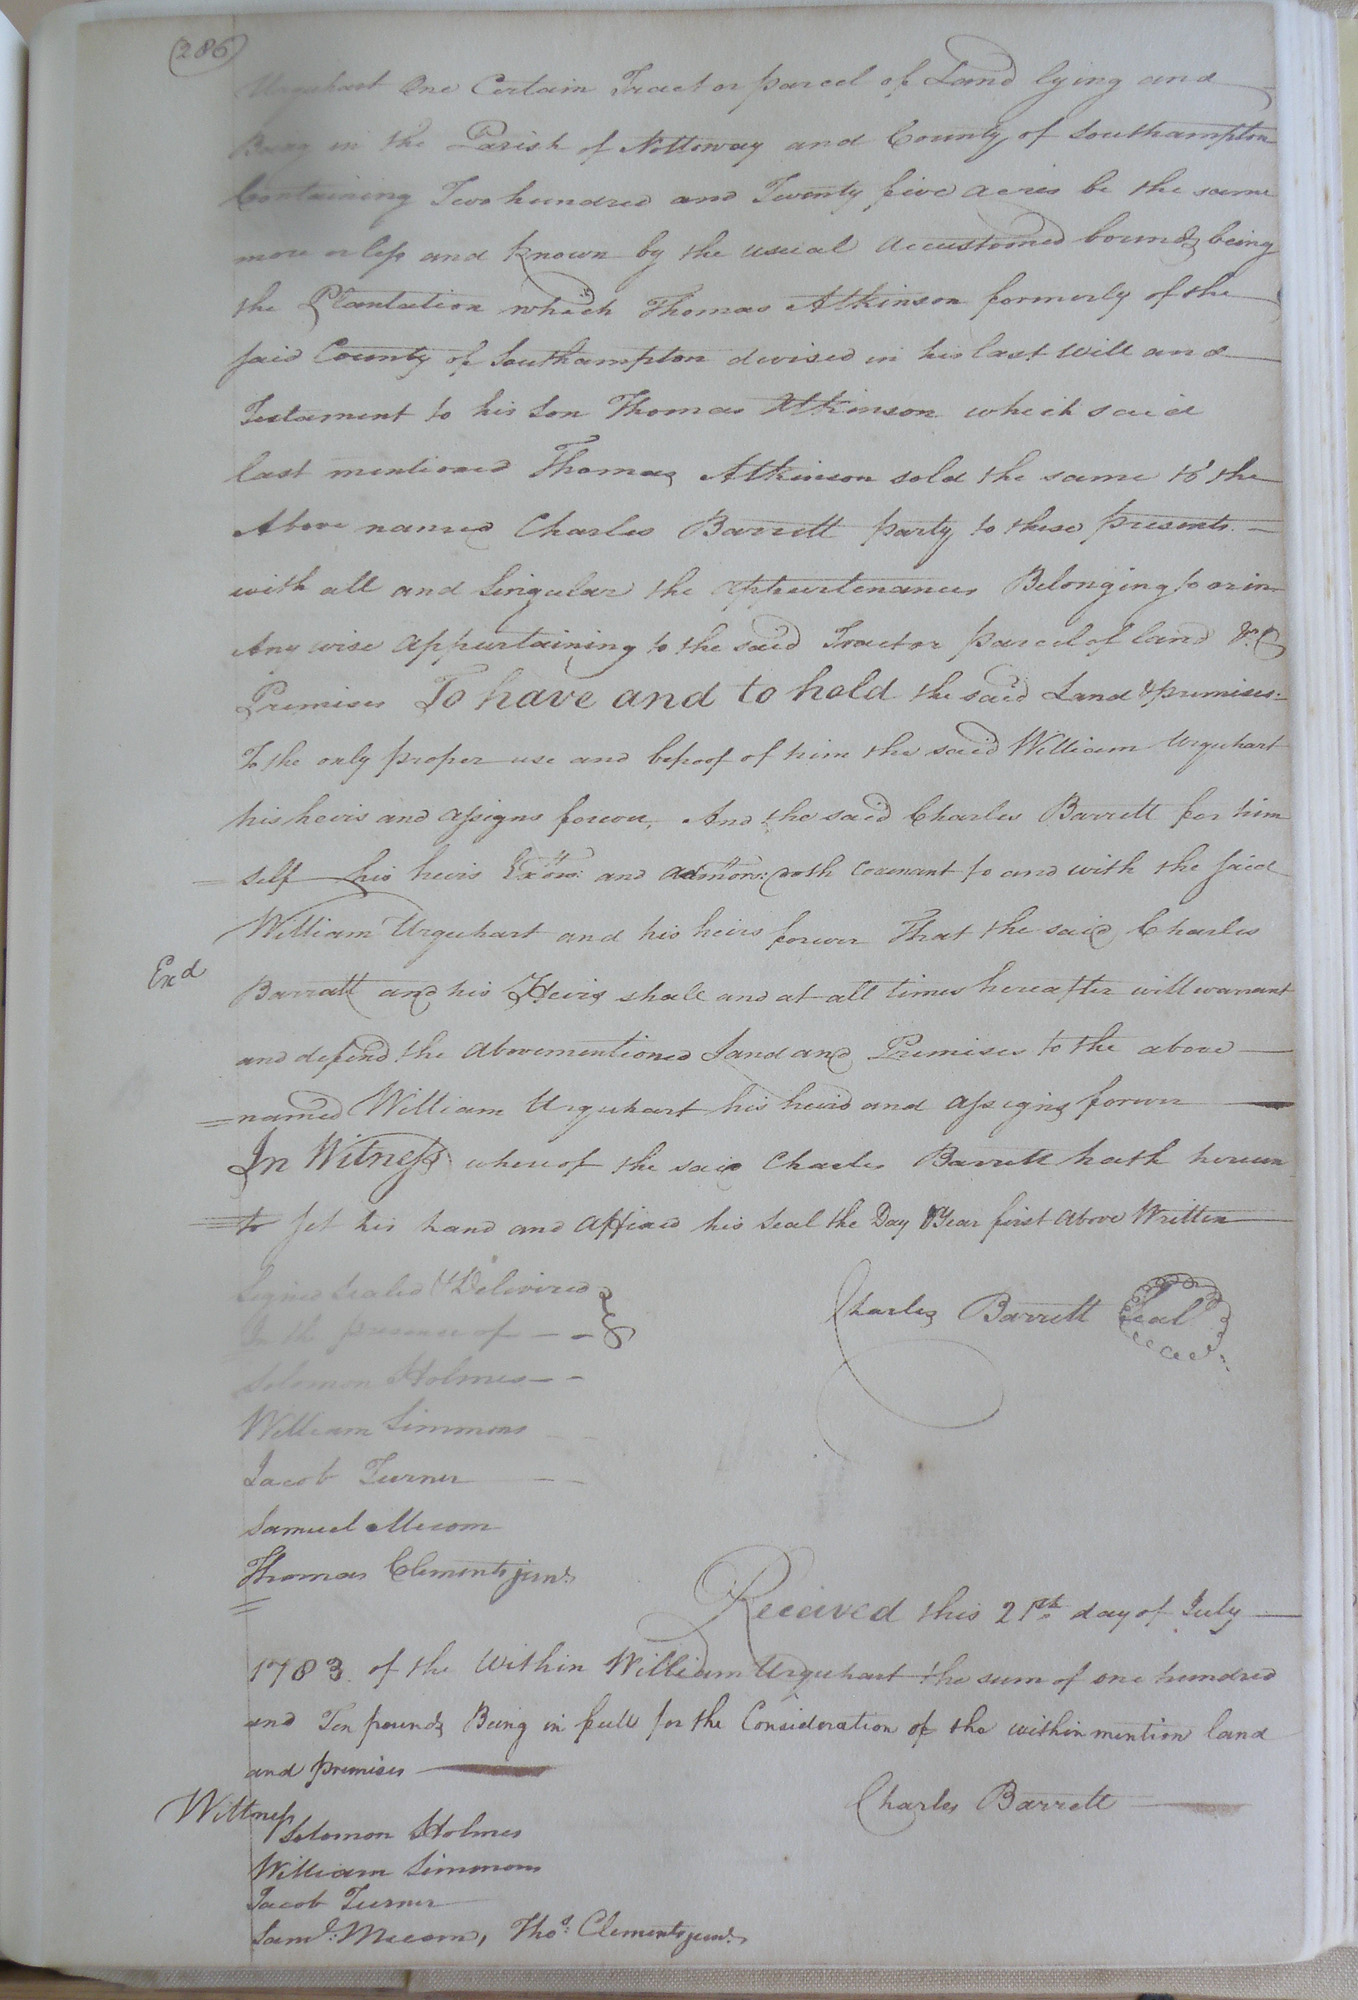 286
Urquhart One Certain Tract or parcel of Land lying and
Being in the Parish of Nottoway and County of Southampton
Containing Two hundred and Twenty five acres be the same
more or less and known by the usual Accustomed bounds being
the Plantation which Thomas Atkinson formerly of the
said County of Southampton devised in his last Will and
Testament to his Son Thomas Atkinson which said
last mentioned Thomas Atkinson sold the same to the
Above named Charles Barrett party to these presents
with all and Singular the appurtenances Belonging to or in
Any wise appurtaining to the said Tract or parcel of land &c
Premises To have and to hold the said Land & premises
To the only proper use and behoof of him the said William Urquhart
his heirs and assigns forever, And the said Charles Barrett for him
self his heirs Exors: and admors: doth Covenant to and with the said
William Urquhart and his heirs forever That the said Charles
Exd
Barratt and his Heirs shall and at all times hereafter will warrant
and defend the Abovementioned Land and Premises to the above
named William Urquhart his heirs and assigns forever
In Witness whereof the said Charles Barrett hath hereun
to set his hand and affixed his Seal the Day & Year first Above Written
Signed Sealed & Delivered
In the presence of
Charles Barrett Seal
Solomon Holmes
William Simmons
Jacob Turner
Samuel Mecom
Thomas Clements junr
Received this 21st day of July
1783 of the Within William Urquhart the sum of one hundred
and Ten pounds Being in full for the Consideration of the within mention land
and premises
Charles Barrett
Wittness
Solomon Holmes
William Simmons
Jacob Turner
Saml: Mecom, Thos: Clements junr.